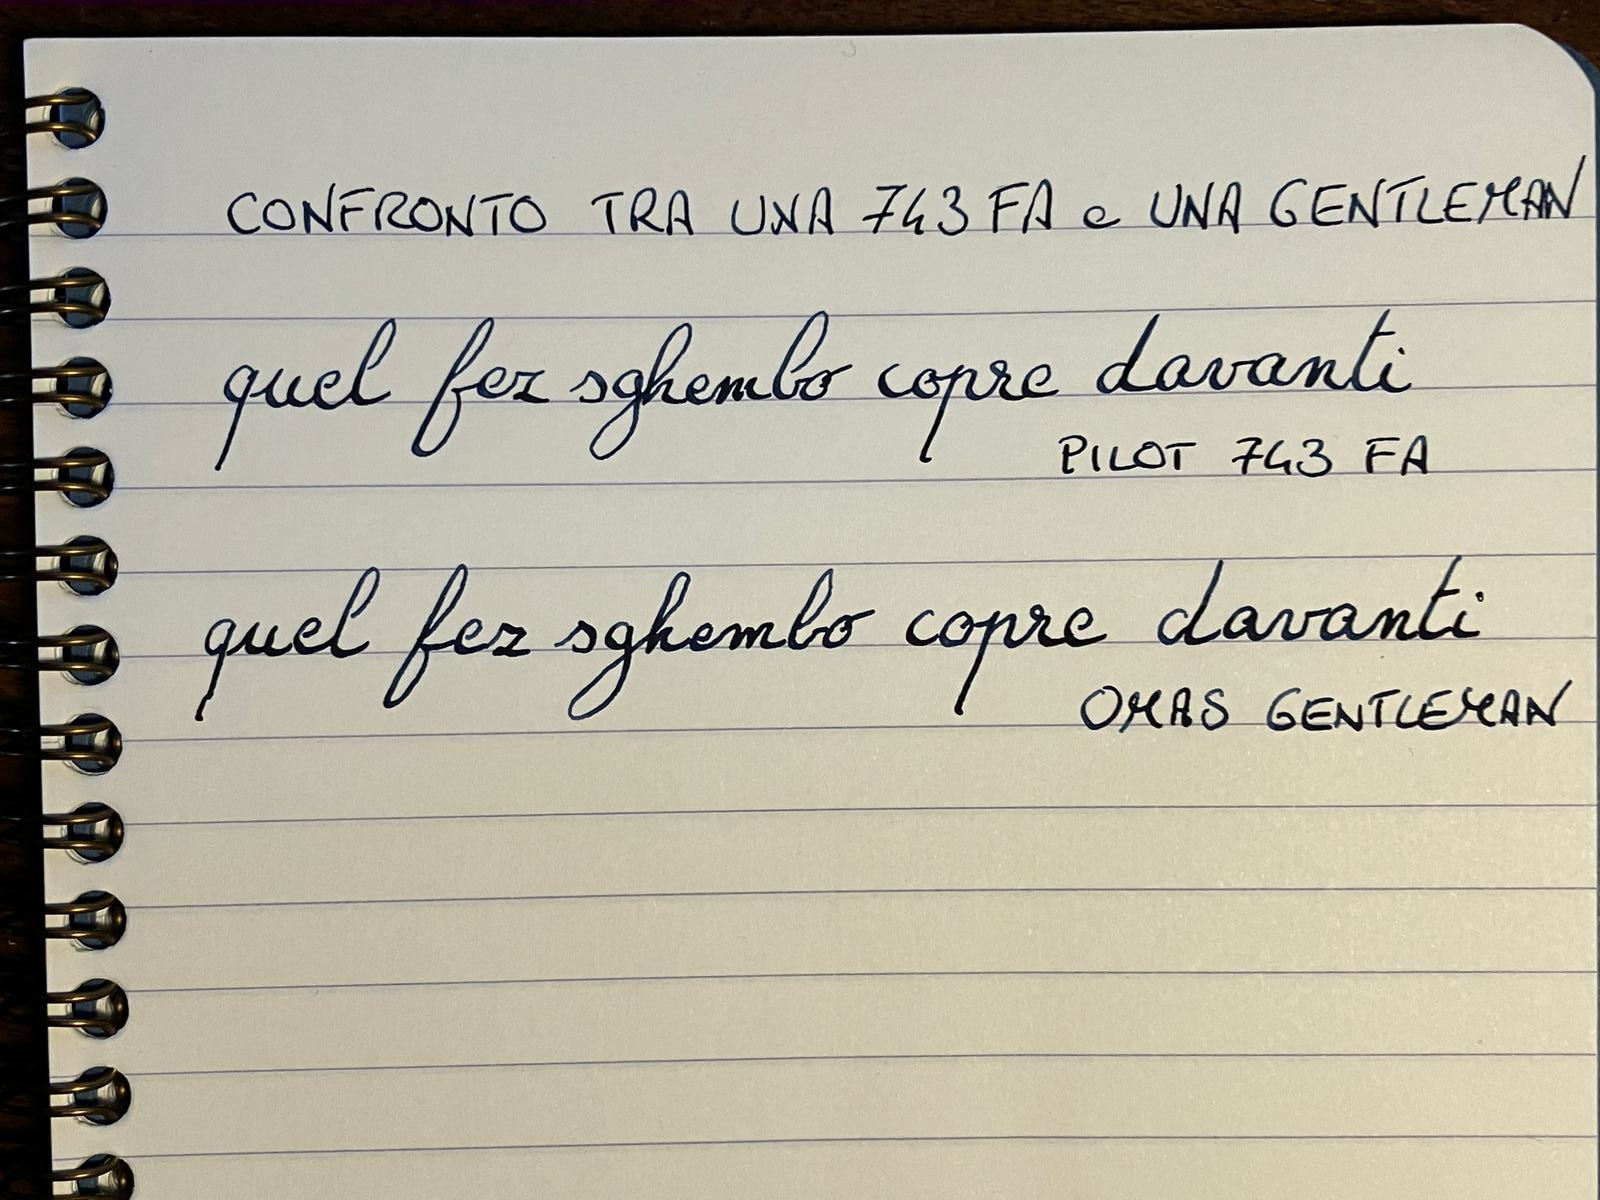 CONFRONTO TRA UNA 743 FA e UNA GENTLEMAN
quel fez sghembo copre davanti
PILOT 743 FA
quel fez sghembo copre davanti
OMAS GENTLEMAN